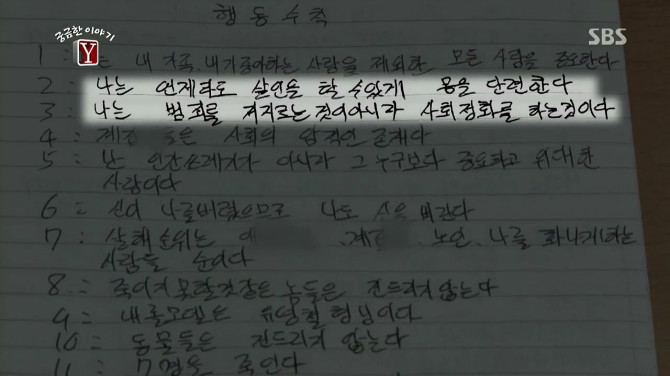 궁금한 이야기
Y
SBS
행동수칙
1 : 는 내 가족, 내가 좋아하는 사람을 제외한 모든 사람을 증오한다
2 : 나는 언제라도 살인을 할 수 있게 몸을 단련한다
3 : 나는 범죄를 저지르는 것이 아니라 사회정화를 하는 것이다
4 : 은 사회의 암적인 존재다
5 : 난 인간쓰레기가 아니라 그 누구보다 중요하고 위대한
사람이다
6 : 신이 나를 버렸으므로 나도 신을 버린다
7 : 살해 순위는 노인, 나를 화나게 하는
사람들 순이다
8 : 죽이지 못할 것 같은 놈들은 건드리지 않는다
9 : 내 롤모델은 유영철 형님이다
10 : 동물들은 건드리지 않는다
11 : 죽인다